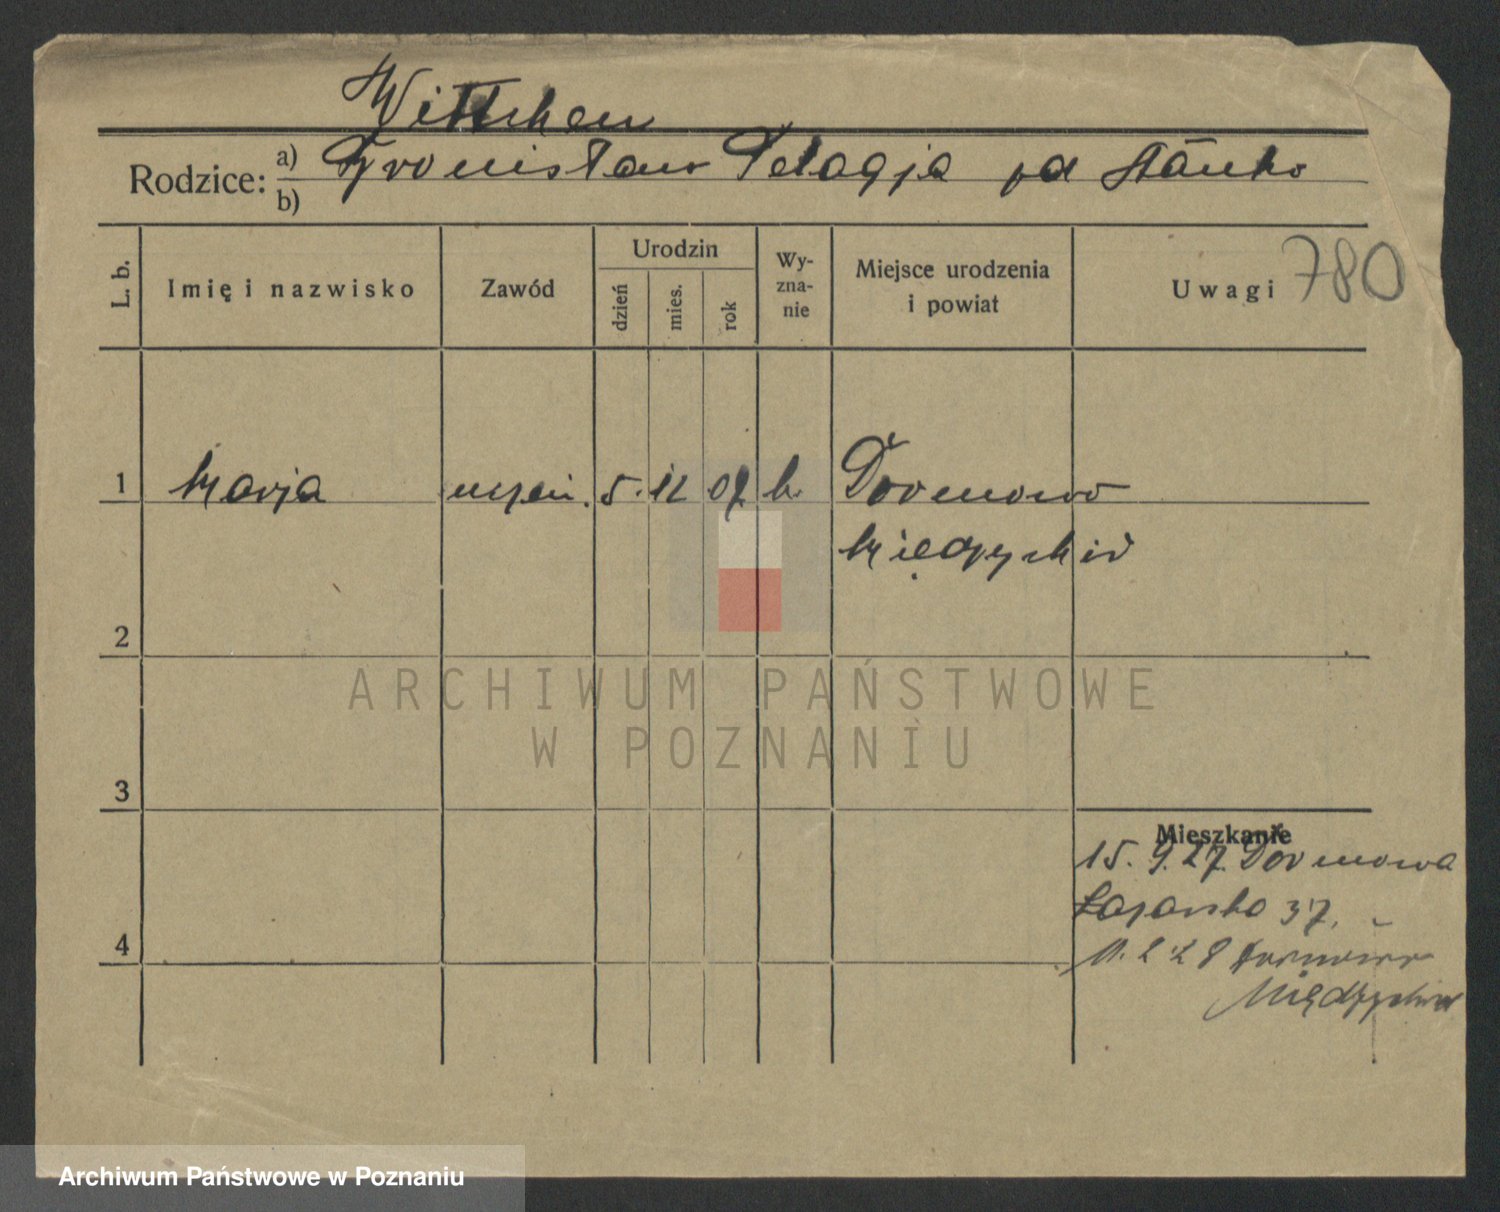 Wittchen
Rodzice: a) Bronisław Pelagja
b)
L. b.
Imię i nazwisko
Zawód
Urodzin
dzień
mies.
rok
Wy-
zna-
nie
Miejsce urodzenia
i powiat
Uwagi
780
1 Marja uczen. 5. 12 07 k. Dormowo
Międzychód
2
3
4
Mieszkanie
15. 9. 27. Dormowa
Łazarska 37.
Dormowo
Międzychód
ARCHIWUM PAŃSTWOWE
W POZNANIU
Archiwum Państwowe w Poznaniu